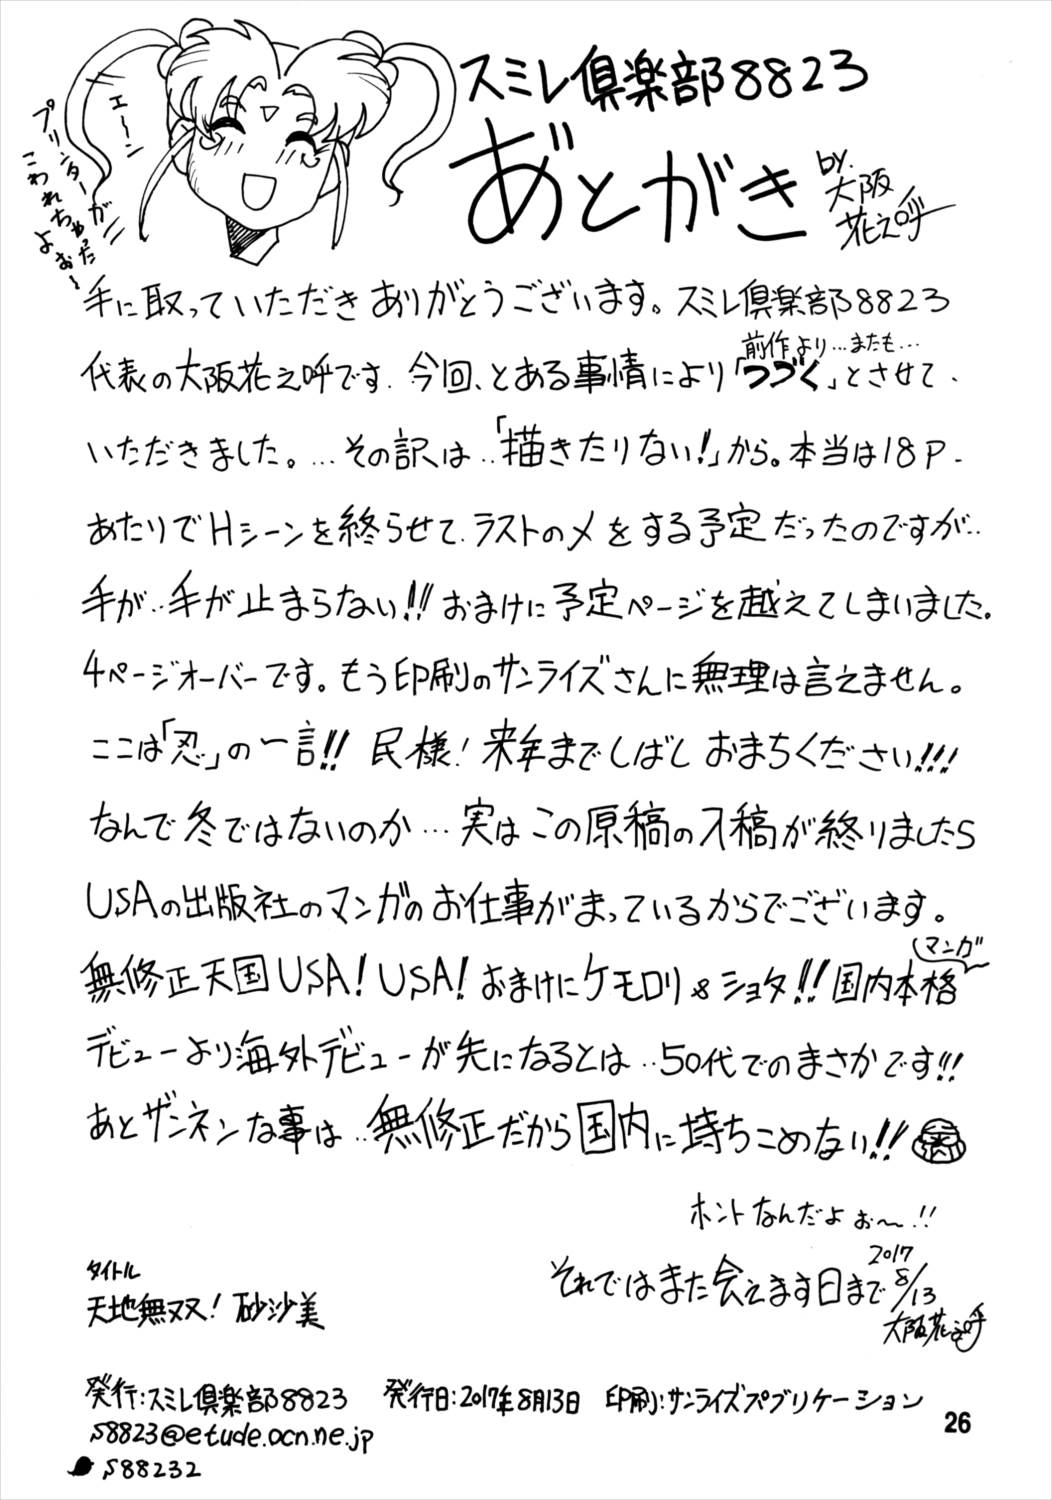 スミレ倶楽部8823
あとがき
by.大阪花之呼
エ〜ン
プリンターが
こわれちゃったよぉ〜
手に取っていただきありがとうございます。スミレ倶楽部8823
代表の大阪花之呼です。今回、とある事情により「つづく」とさせて、
前作より…またも…
いただきました。…その訳は‥「描きたりない!」から。本当は18P.
あたりでHシーンを終らせて、ラストの〆をする予定だったのですが‥
手が‥手が止まらない!!おまけに予定ページを越えてしまいました。
4ページオーバーです。もう印刷のサンライズさんに無理は言えません。
ここは「忍」の一言!!民様!来年までしばしおまちください!!!
なんで冬ではないのか…実はこの原稿の入稿が終りましたら
USAの出版社のマンガのお仕事がまっているからでございます。
無修正天国USA!USA!おまけにケモロリ&ショタ!!国内本格
マンガ
デビューより海外デビューが先になるとは‥50代でのまさかです!!
あとザンネンな事は‥無修正だから国内に持ちこめない!!
ホントなんだよぉ〜!!
それではまた会えます日まで
2017
8/13
大阪花之呼
タイトル
天地無双!砂沙美
発行:スミレ倶楽部8823 発行日:2017年8月13日 印刷:サンライズパブリケーション
s8823@etude.ocn.ne.jp
s88232
26